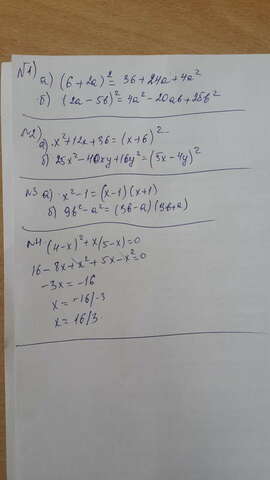 №1)
а) (6+2a)² = 36+24a+4a²
б) (2a-5b)² = 4a²-20ab+25b²
№2)
а) x²+12x+36=(x+6)²
б) 25x²-40xy+16y²=(5x-4y)²
№3 а) x²-1=(x-1)(x+1)
б) 9b²-a²=(3b-a)(3b+a)
№4 (4-x)²+x(5-x)=0
16-8x+x²+5x-x²=0
-3x=-16
x=-16/-3
x=16/3